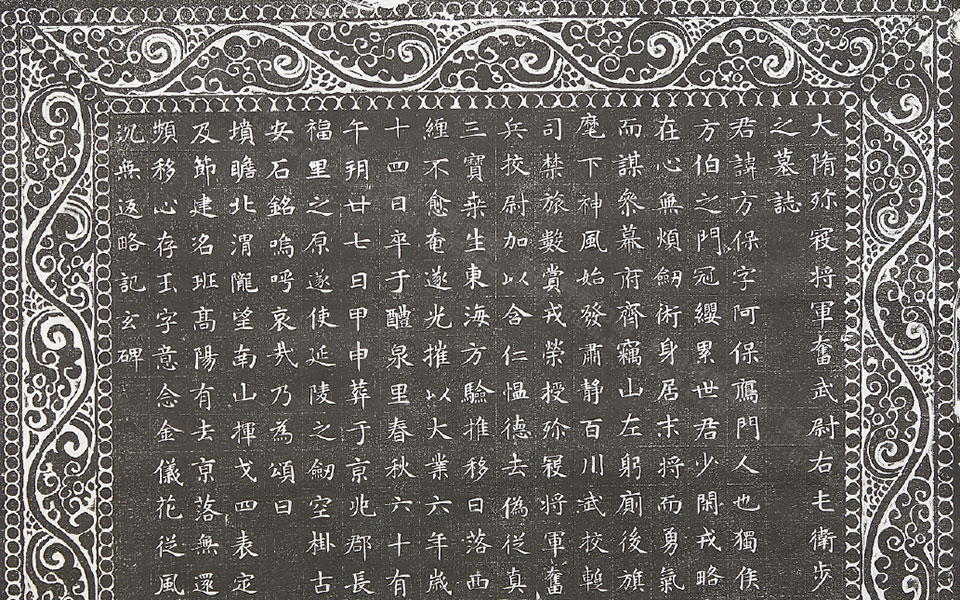 大隋殄寇将軍奮武尉右圡衛步
之墓誌
君諱方保字阿保鴈門人也獨侯
方伯之門冠纓累世君少閑戎略
在心無煩劒術身居末将而勇氣
而謀叅幕府齊竊山左躬廁後旗
麾下神風始發肅静百川武挍
司禁旅數賞戎榮授殄寇将軍奮
兵挍尉加以含仁愠德去偽従真
三寶来生東海方驗推移日落西
纏不愈奄遂光摧以大業六年歲
十四日卒于醴泉里春秋六十有
午朔廿七日甲申葬于京兆郡長
福里之原遂使延陵之劒空掛古
安石銘嗚呼哀㢤乃為頌曰
墳瞻北渭隴望南山揮戈四表定
及節建洺班髙陽有去京落無還
頻移心存玉字意念金儀花従風
沉無返略記玄碑